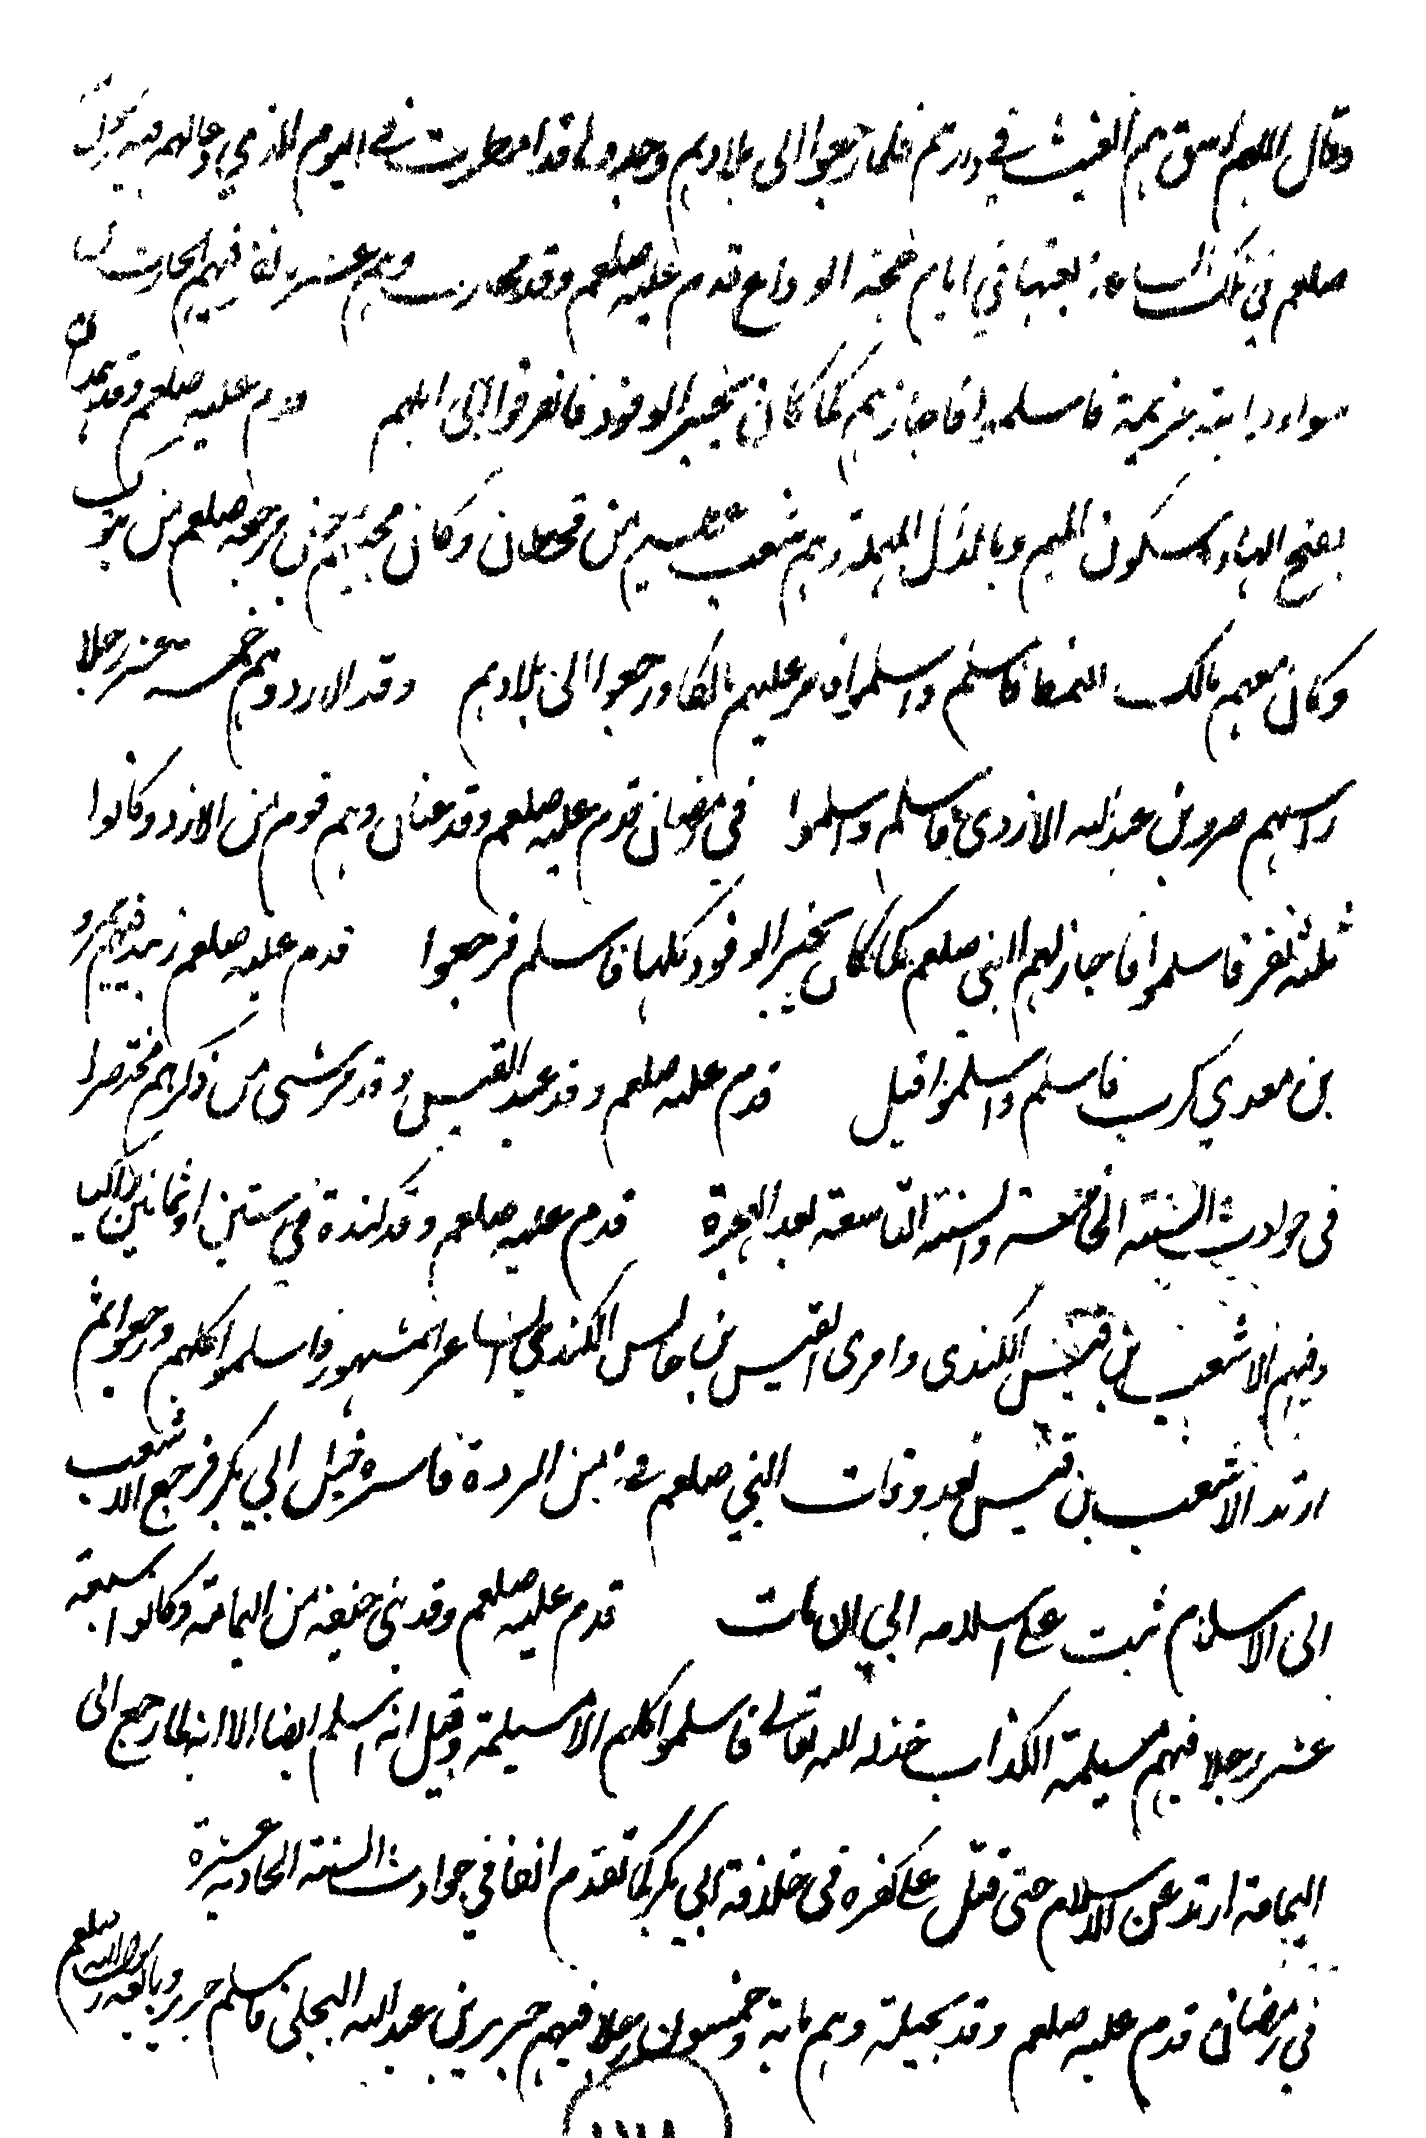 وقال اللهم اسق بهم الغيث في دارهم فلما رجعوا الى بلادهم وجدوها قد امطرت في اليوم الذي دعا لهم فيه رسول
صلعم في تلك الساعة بعينها في ايام حجة الوداع قدم عليه صلعم وفد محارب وهم عشرة فيهم الحارث
سواء وابنه خزيمة فاسلموا فاجازهم كما كان يجيز الوفود فانصرفوا الى اهلهم قدم عليه صلعم وفد همدان
بفتح الهاء وسكون الميم وبالدال المهملة وهم شعب عظيم من قحطان وكان مجيئهم حين مرجعه صلعم من تبوك
وكان معهم مالك النمط فاسلم واسلموا فامر عليهم مالكا ورجعوا الى بلادهم وفد الازد وهم خمسة عشر رجلا
راسهم صرد بن عبد الله الازدي فاسلم واسلموا في رمضان قدم عليه صلعم وفد غسان وهم قوم من الازد وكانوا
ثلثة نفر فاسلموا فاجازهم النبي صلعم كما كان يجيز الوفود كلها فاسلم فرجعوا قدم عليه صلعم زبيد فيهم عمرو
بن معدي كرب فاسلم واسلموا قيل قدم عليه صلعم وفد عبد القيس وقد مر شيء من ذكرهم مختصرا
في حوادث السنة الخامسة والسنة التاسعة بعد الهجرة قدم عليه صلعم وفد كندة في ستين او ثمانين راكبا
وفيهم الاشعث بن قيس الكندي وامرئ القيس بن عابس الكندي الشاعر المشهور فاسلموا كلهم ورجعوا ثم
ارتد الاشعث بن قيس بعد وفات النبي صلعم في زمن الردة فاسره خيل ابي بكر فرجع الاشعث
الى الاسلام ثبت على اسلامه الى ان مات قدم عليه صلعم وفد بني حنيفة من اليمامة وكانوا سبعة
عشر رجلا فيهم مسيلمة الكذاب خذله الله تعالى فاسلموا كلهم الا مسيلمة وقيل انه اسلم ايضا الا انه لما رجع الى
اليمامة ارتد عن الاسلام حتى قتل على كفره في خلافة ابي بكر كما تقدم انفا في حوادث السنة الحادية عشرة
في رمضان قدم عليه صلعم وفد بجيلة وهم مايه وخمسون رجلا فيهم جرير بن عبد الله البجلي فاسلم جرير وبايعه رسول الله صلعم